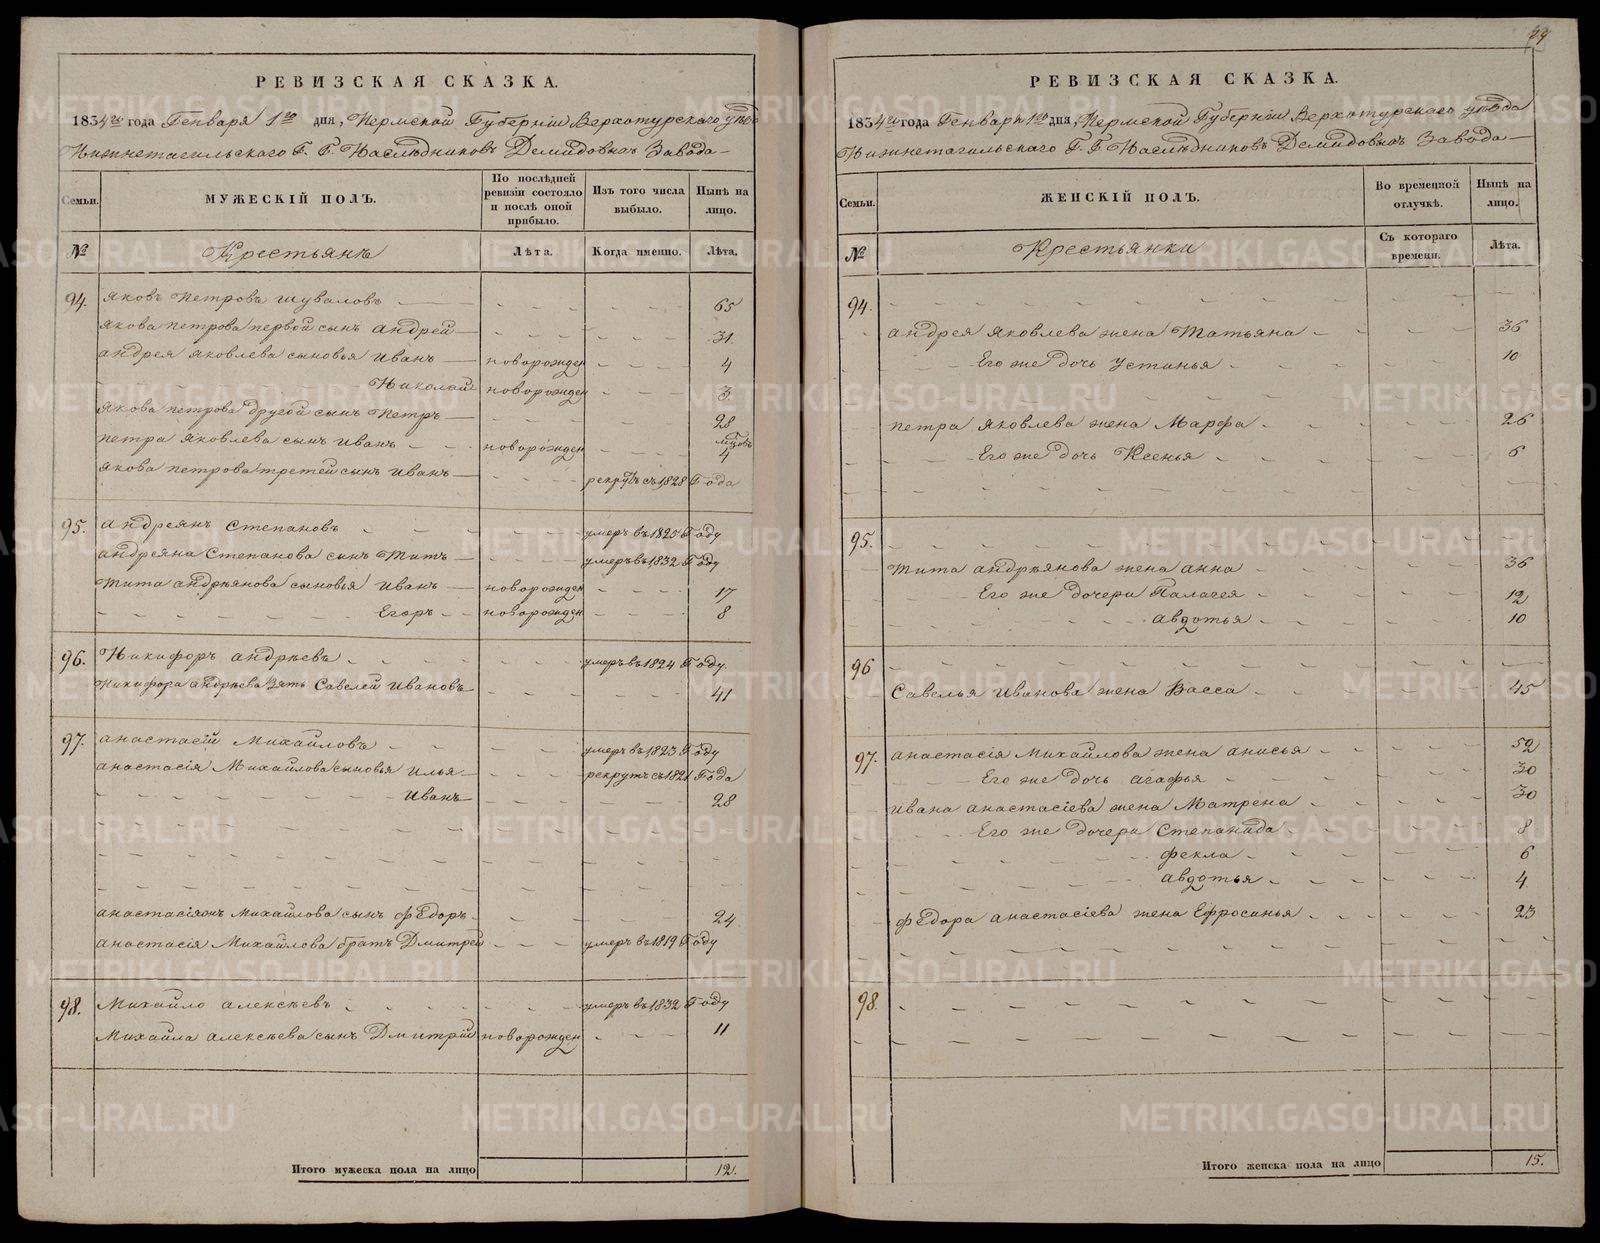 РЕВИЗСКАЯ СКАЗКА.
1834го года Генваря 1го дня, Пермской Губерніи Верхотурского уезда
Нижнетагильского Г. Г. Наслѣдниковъ Демидовыхъ Завода
Семьи.
МУЖЕСКІЙ ПОЛЪ.
По послѣдней ревизіи состояло и послѣ оной прибыло.
Изъ того числа выбыло.
Нынѣ на лицо.
№
Крестьянъ
Лѣта.
Когда именно.
Лѣта.
94. Яковъ Петровъ Шуваловъ 65
Якова Петрова первой сынъ Андрей 31
Андрея Яковлева сыновья Иванъ новорожден 4
Николай новорожден 3
Якова Петрова другой сынъ Петръ 28
Петра Яковлева сынъ Иванъ новорожден 4
Якова Петрова третей сынъ Иванъ рекрутъ съ 1828 Года
95. Андреянъ Степановъ умеръ въ 1825 Году
Андреяна Степанова сынъ Титъ умеръ въ 1832 Году
Тита Андрѣянова сыновья Иванъ новорожден 17
Егоръ новорожден 8
96. Никифоръ Андрѣевъ умеръ въ 1824 Году.
Никифора Андрѣева зять Савелей Ивановъ 41
97. Анастасій Михайловъ умеръ въ 1823 Году
Анастасія Михайлова сыновья Илья рекрутъ съ 1821 Года
Иванъ 28
Михайлова сынъ Фёдоръ 24
Анастасія Михайлова братъ Дмитрей умеръ въ 1819 Году
98. Михайло Алексѣевъ умеръ въ 1832 Году
Михайла Алексѣева сынъ Дмитрій новорожден 11
Итого мужеска пола на лицо 12.
РЕВИЗСКАЯ СКАЗКА.
1834го года Генваря 1го дня, Пермской Губерніи Верхотурского уезда
Нижнетагильского Г. Г. Наслѣдниковъ Демидовыхъ Завода
Семьи.
ЖЕНСКІЙ ПОЛЪ.
Во временной отлучкѣ.
Нынѣ на лицо.
№
Крестьянки
Съ котораго времени.
Лѣта.
94.
Андрея Яковлева жена Татьяна 36
Его же дочь Устинья 10
Петра Яковлева жена Марфа 26
Его же дочь Ксенья 6
95.
Тита Андрѣянова жена Анна 36
Его же дочери Палагея 12
Авдотья 10
96
Савелья Иванова жена Васса 45
97. Анастасія Михайлова жена Анисья 52
Его же дочь Агафья 30
Ивана Анастасіева жена Матрена 30
Его же дочери Степанида 8
Фекла 6
Авдотья 4
Фёдора Анастасіева жена Ефросинья 23
98.
Итого женска пола на лицо 15.
METRIKI.GASO-URAL.RU